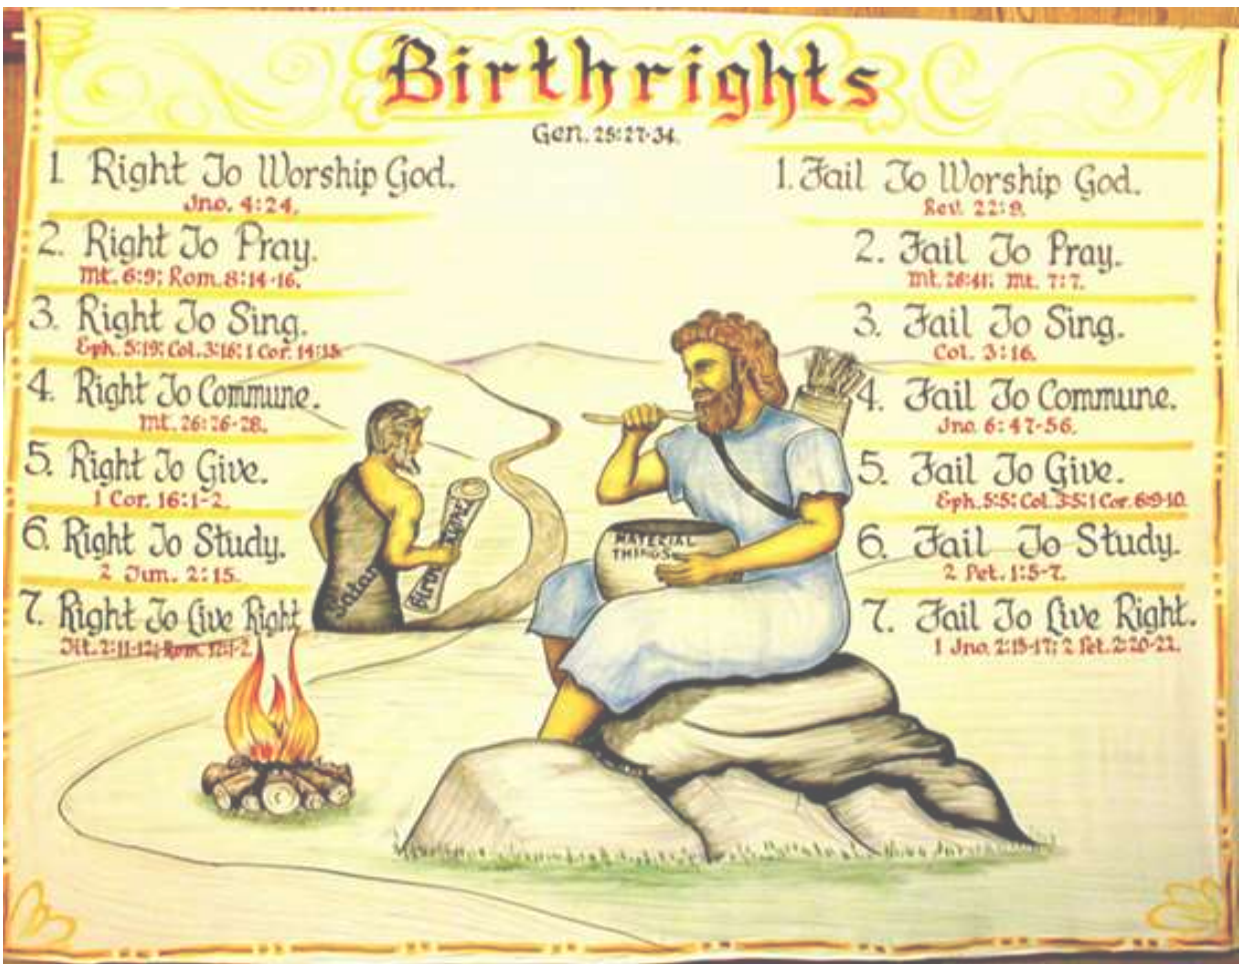 Birthrights
Gen. 25:27-34.
1. Right To Worship God.
Jno. 4:24.
2. Right To Pray.
Mt. 6:9; Rom. 8:14-16.
3. Right To Sing.
Eph. 5:19; Col. 3:16; 1 Cor. 14:15
4. Right To Commune.
Mt. 26:26-28.
5. Right To Give.
1 Cor. 16:1-2.
6. Right To Study.
2 Tim. 2:15.
7. Right To Live Right
Tit. 2:11-12; Rom. 12:1-2.
1. Fail To Worship God.
Rev. 22:9.
2. Fail To Pray.
Mt. 26:41; Mt. 7:7.
3. Fail To Sing.
Col. 3:16.
4. Fail To Commune.
Jno. 6:47-56.
5. Fail To Give.
Eph. 5:5; Col. 3:5; 1 Cor. 6:9-10.
6. Fail To Study.
2 Pet. 1:5-7.
7. Fail To Live Right.
1 Jno. 2:15-17; 2 Pet. 2:20-22.
Satan
MATERIAL
THINGS